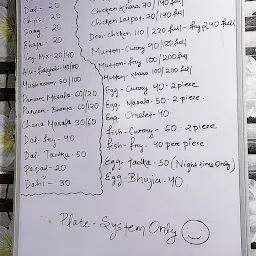 Dal - 20
Chips - 20
Saag - 20
Bhaja - 20
Veg. Mix - 20/40
Alu-fulgobi - 40/80
Mushroom 50/100
Paneer Masala - 60/120
Paneer - Butter 60/120
Chana Masala 30/60
Dal - fry - 40
Dal - Tadka - 50
Papad - 20
Dahi - 30
Chicken Kasa 70/140 full
Chicken Lapot - 70/140 full
Desi Chicken 110/220 full - fry 240 full
Mutton - Curry 90/180 full
Mutton - fry 100/200 full
Mutton - Kasa 100/200 full
Egg - Curry 40 - 2 piece
Egg - Masala - 50 - 2 piece
Egg - Omelet - 40
fish - Curry - 60 - 2 piece
fish - fry. 40 per piece
Egg. tadka - 50 (Night time Only)
Egg. Bhujia - 40
Plate - System Only